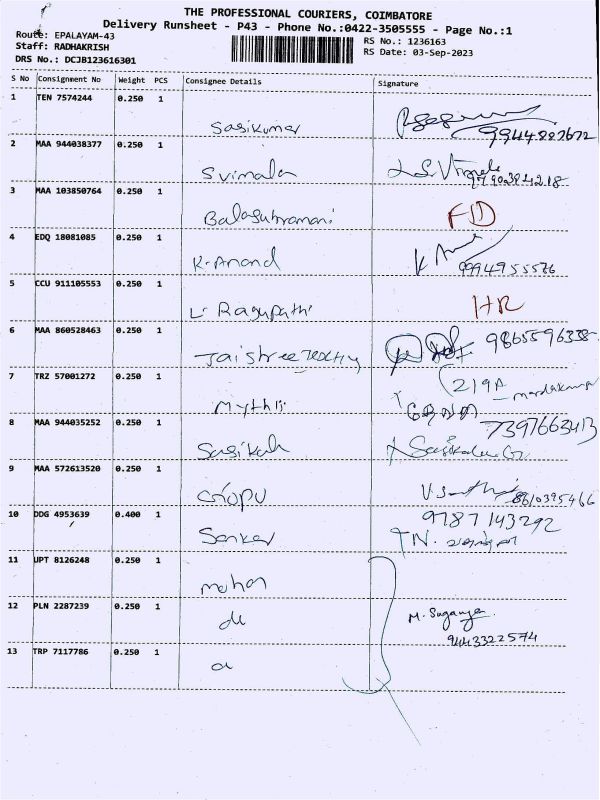 THE PROFESSIONAL COURIERS, COIMBATORE
Delivery Runsheet - P43 - Phone No.:0422-3505555 - Page No.:1
Route: EPALAYAM-43
RS No.: 1236163
Staff: RADHAKRISH
RS Date: 03-Sep-2023
DRS No.: DCJB123616301
S No Consignment No Weight PCS Consignee Details Signature
1 TEN 7574244 0.250 1
Sasikumar 9944887672
2 MAA 944038377 0.250 1
Svimala
3 MAA 103850764 0.250 1
Balasubramani FD
4 EDQ 18081085 0.250 1
K. Anand K Anand 9994955576
5 CCU 911105553 0.250 1
L. Ragupathi HR
6 MAA 860528463 0.250 1 9865596338
Jaishree
7 TRZ 57001272 0.250 1 219A
Mythli
8 MAA 944035252 0.250 1 7397663413
Sasikala Sasikala
9 MAA 572613520 0.250 1
Gopu V. Santhi 8610395466
10 DDG 4953639 0.400 1 9787143292
Sankar
11 UPT 8126248 0.250 1
mohan
12 PLN 2287239 0.250 1
do M. Suganya
9443322574
13 TRP 7117786 0.250 1